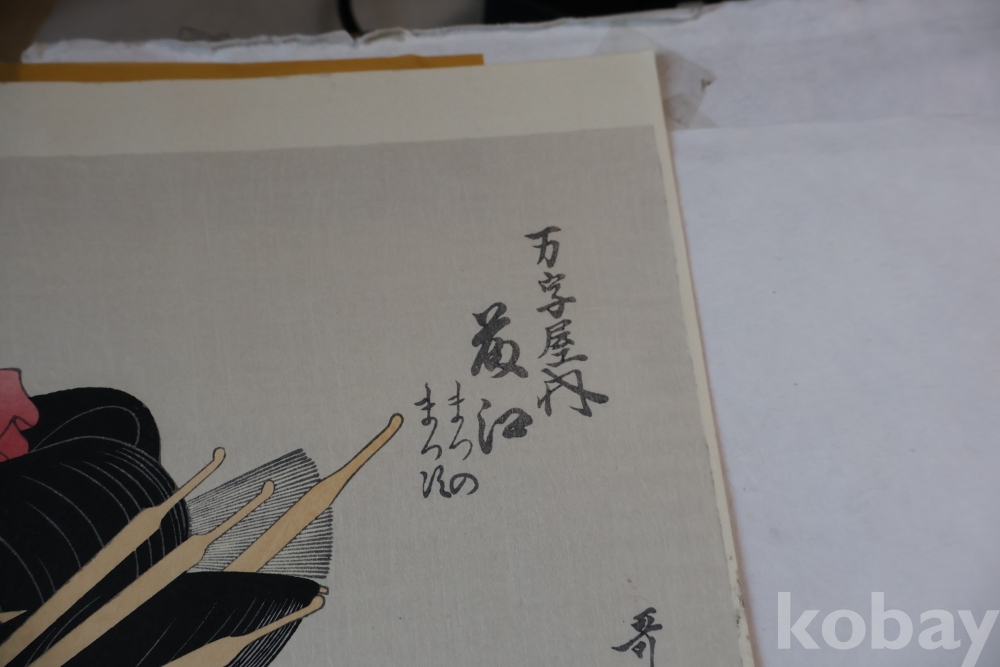 万字屋内
菽江
まつの
まつ次
哥
kobay